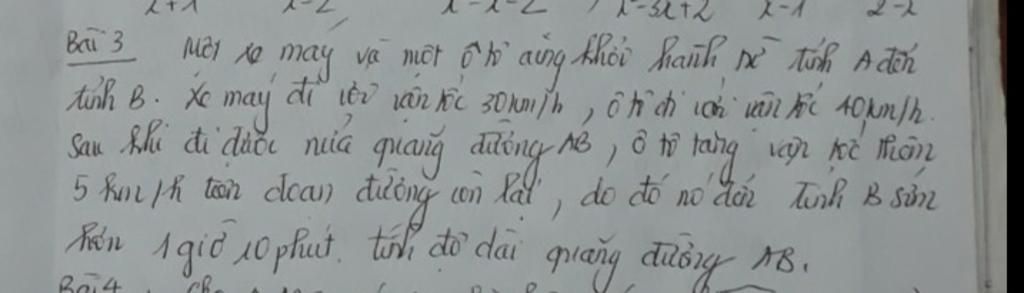 Bài 3 Một xe máy và một ô tô cùng khởi hành từ tỉnh A đến
tỉnh B. Xe máy đi với vận tốc 30km/h, ô tô đi với vận tốc 40km/h.
Sau khi đi được nửa quãng đường AB, ô tô tăng vận tốc thêm
5 km/h trên đoạn đường còn lại, do đó nó đến tỉnh B sớm
hơn 1 giờ 10 phút. tính độ dài quãng đường AB.
Bài 4